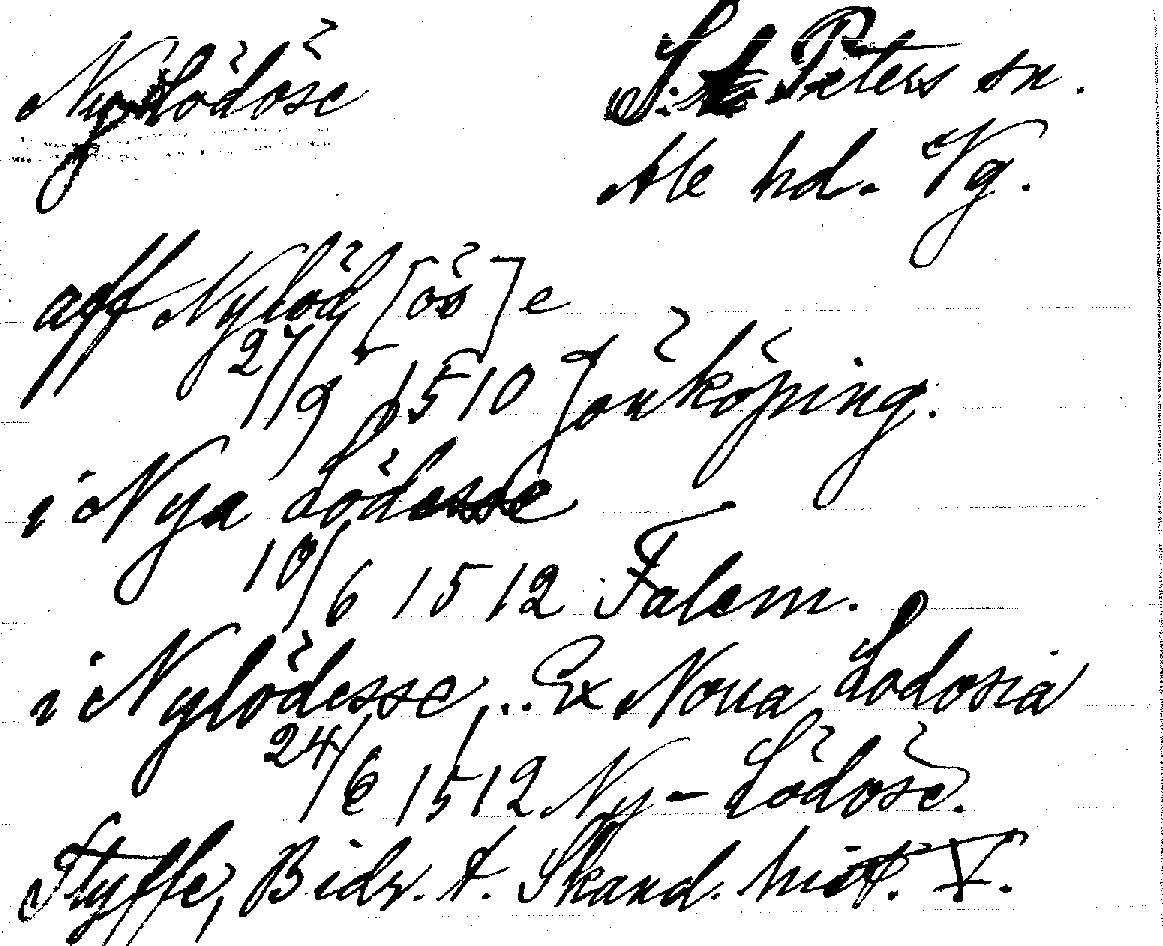 Nylödöse S:t Peters sn.
Ale hd. Vg.
aff Nylöd [ös] e
27/9 1510 Jönköping.
i Nya Lödesse
10/6 1512 Falem.
i Nylödesse... Ex Noua Lodosia
24/6 1512 Ny-Lödöse.
Styffe, Bidr. t. Skand. hist. V.